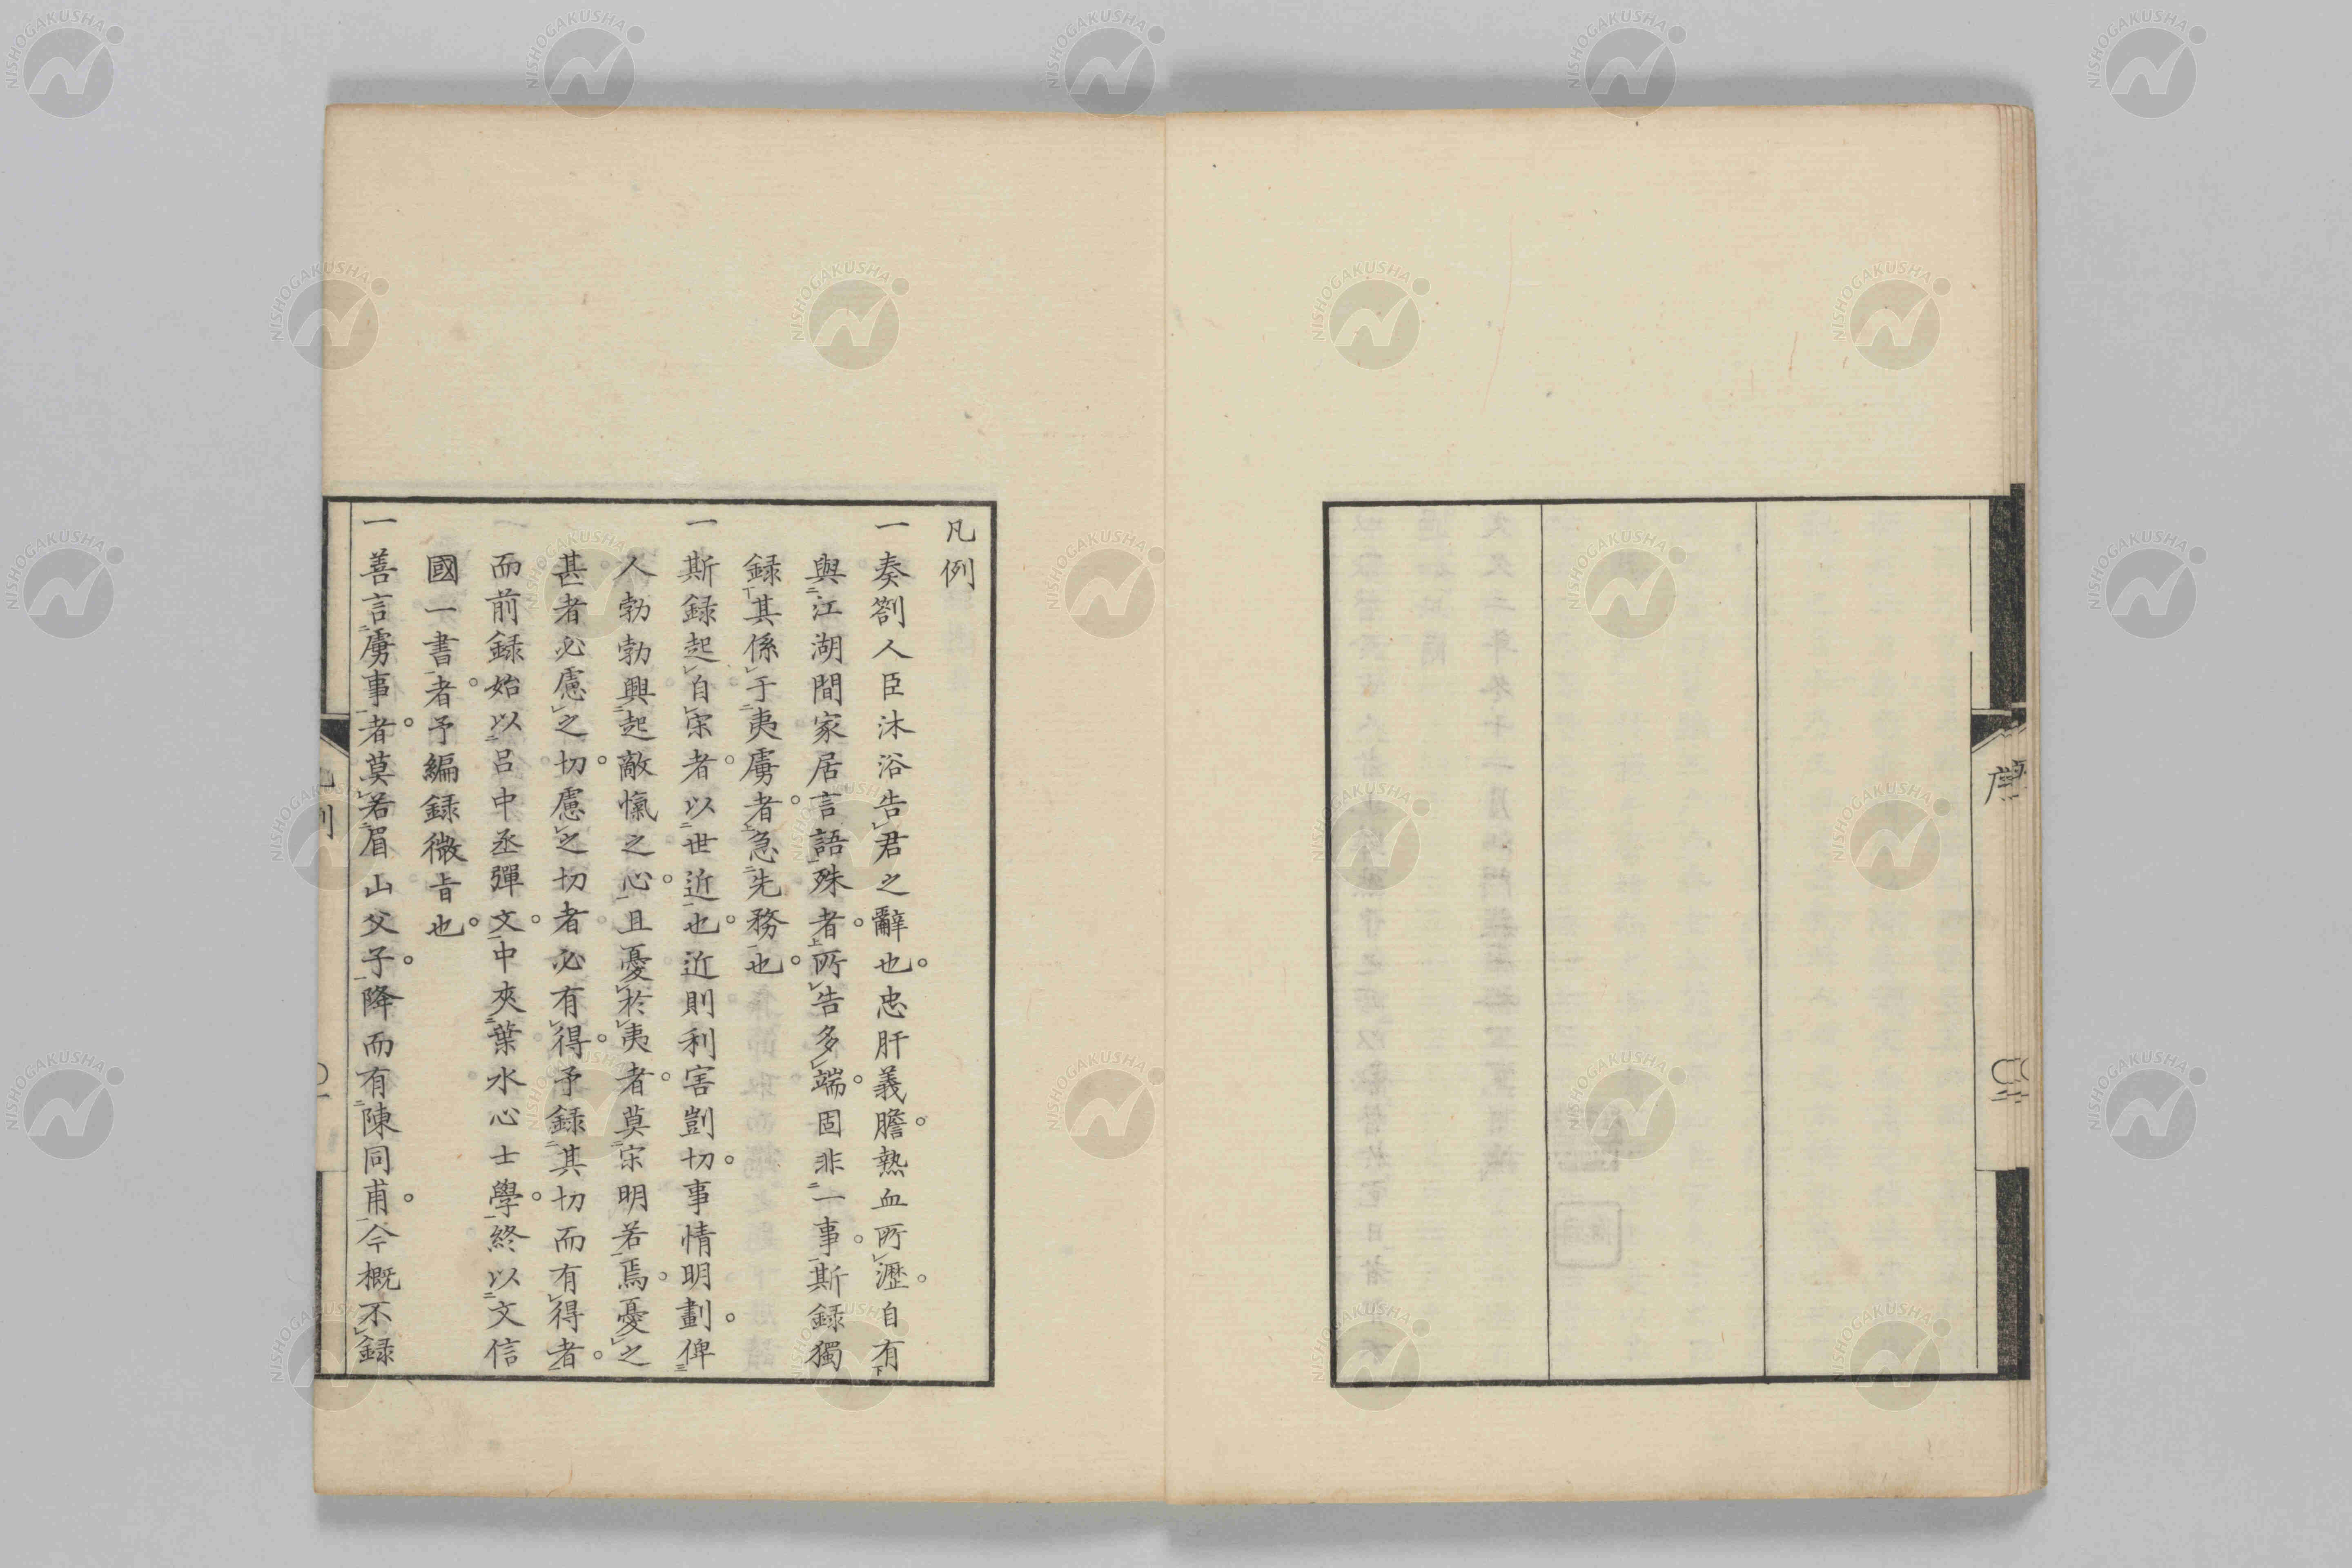 凡例
一奏劄人臣沐浴告君之辭也。忠肝義膽。熱血所瀝。自有
與江湖間家居言語殊者。所告多端。固非一事。斯録獨
録其係于夷虜者。急先務也。
一斯録起自宋者。以世近也。近則利害剴切。事情明劃。俾
人勃勃興起敵愾之心。且憂於夷者。莫宋明若焉。憂之
甚者必慮之切。慮之切者必有得。予録其切而有得者。
而前録始以呂中丞彈文。中夾葉水心士學。終以文信
國一書者。予編録微旨也。
一善言虜事者。莫若眉山父子。降而有陳同甫。今概不録
凡例
序
NISHOGAKUSHA